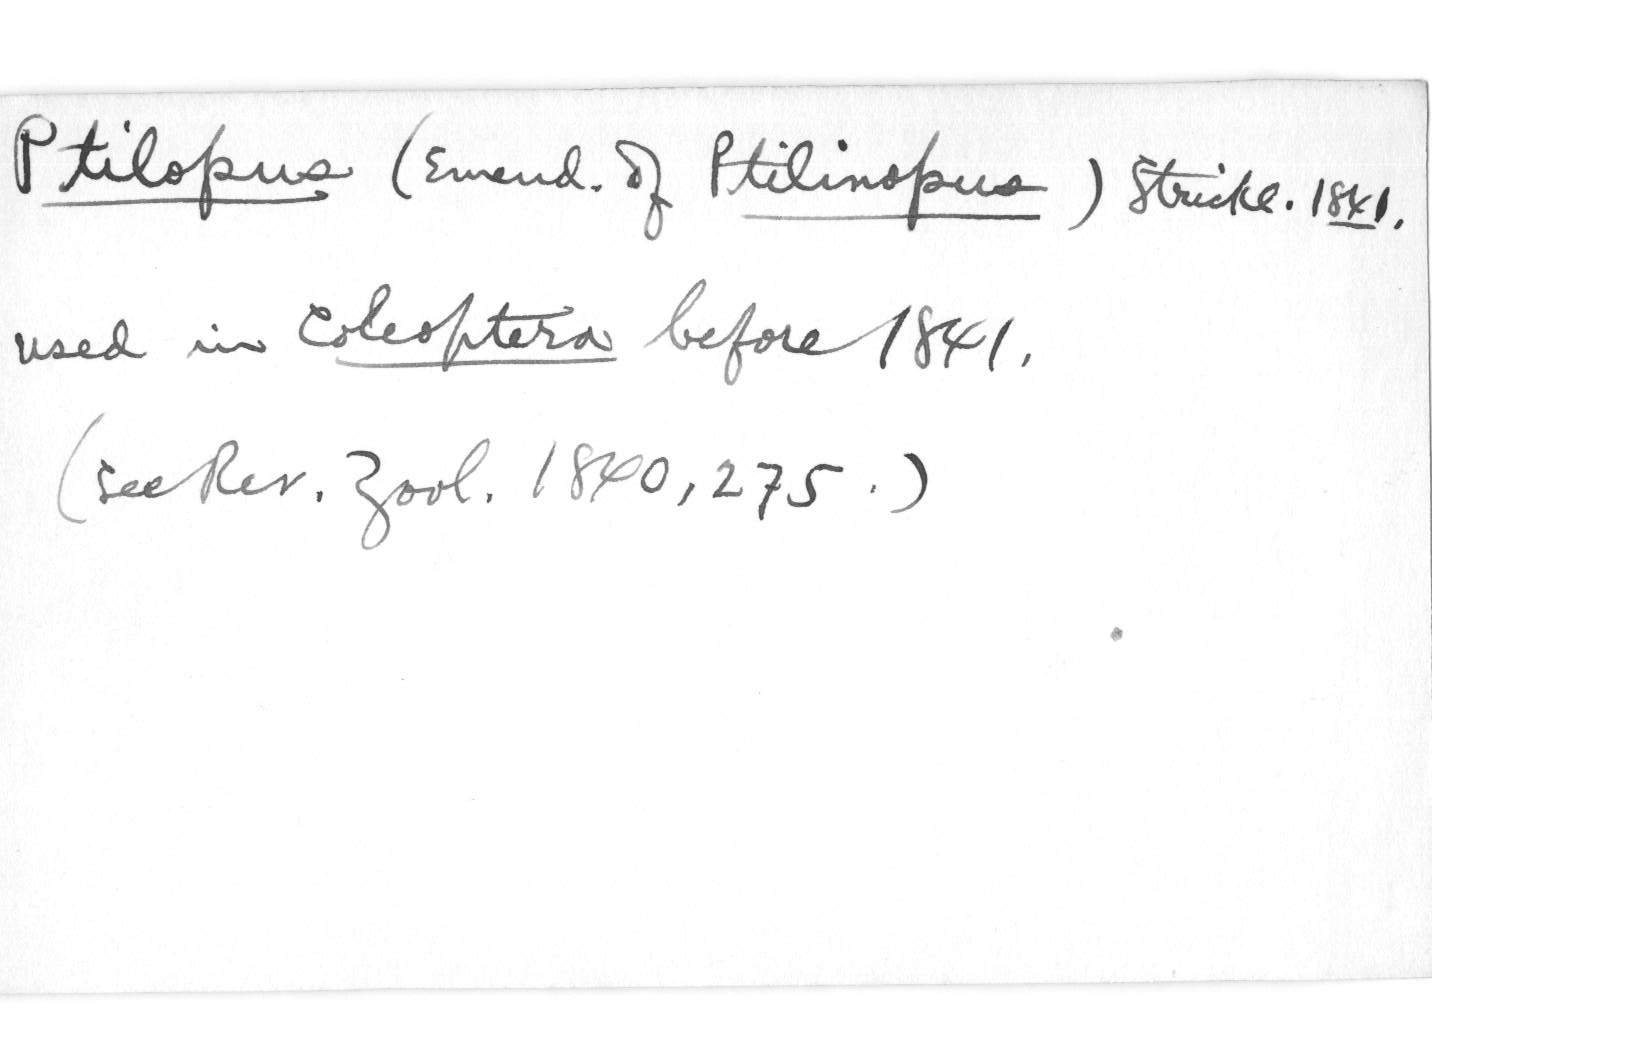 Ptilopus (Emend. of Ptilinopus) Strickl. 1841.
used in Coleoptera before 1841.
(see Rev. Zool. 1840, 275.)